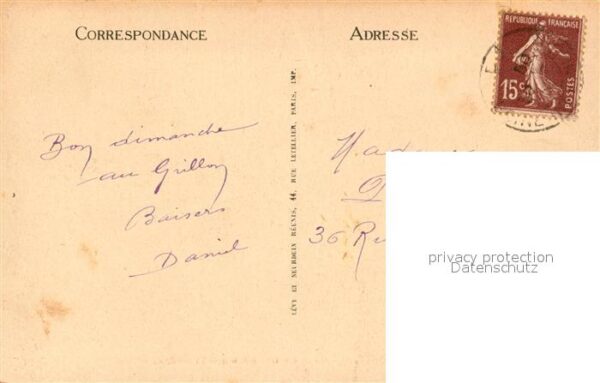 CORRESPONDANCE
ADRESSE
RÉPUBLIQUE FRANÇAISE
15c
POSTES
INE
Bon dimanche
au Grillon
Baisers
Daniel
LÉVY ET NEURDEIN RÉUNIS, 44, RUE LETELLIER, PARIS, IMP.
Madame
36 Ru
privacy protection
Datenschutz